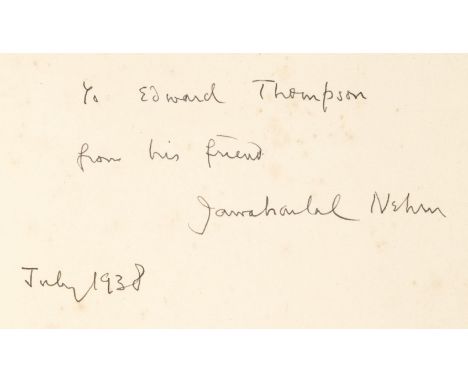 To Edward Thompson
from his friend
Jawaharlal Nehru
July 1938